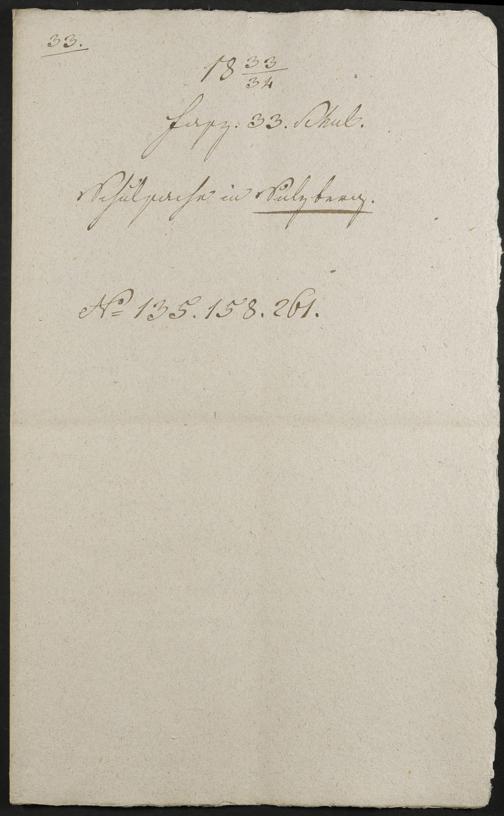 33.
18 33/34
Fasz: 33. Schul.
Schulsache in Sulzberg.
No 135. 158. 261.